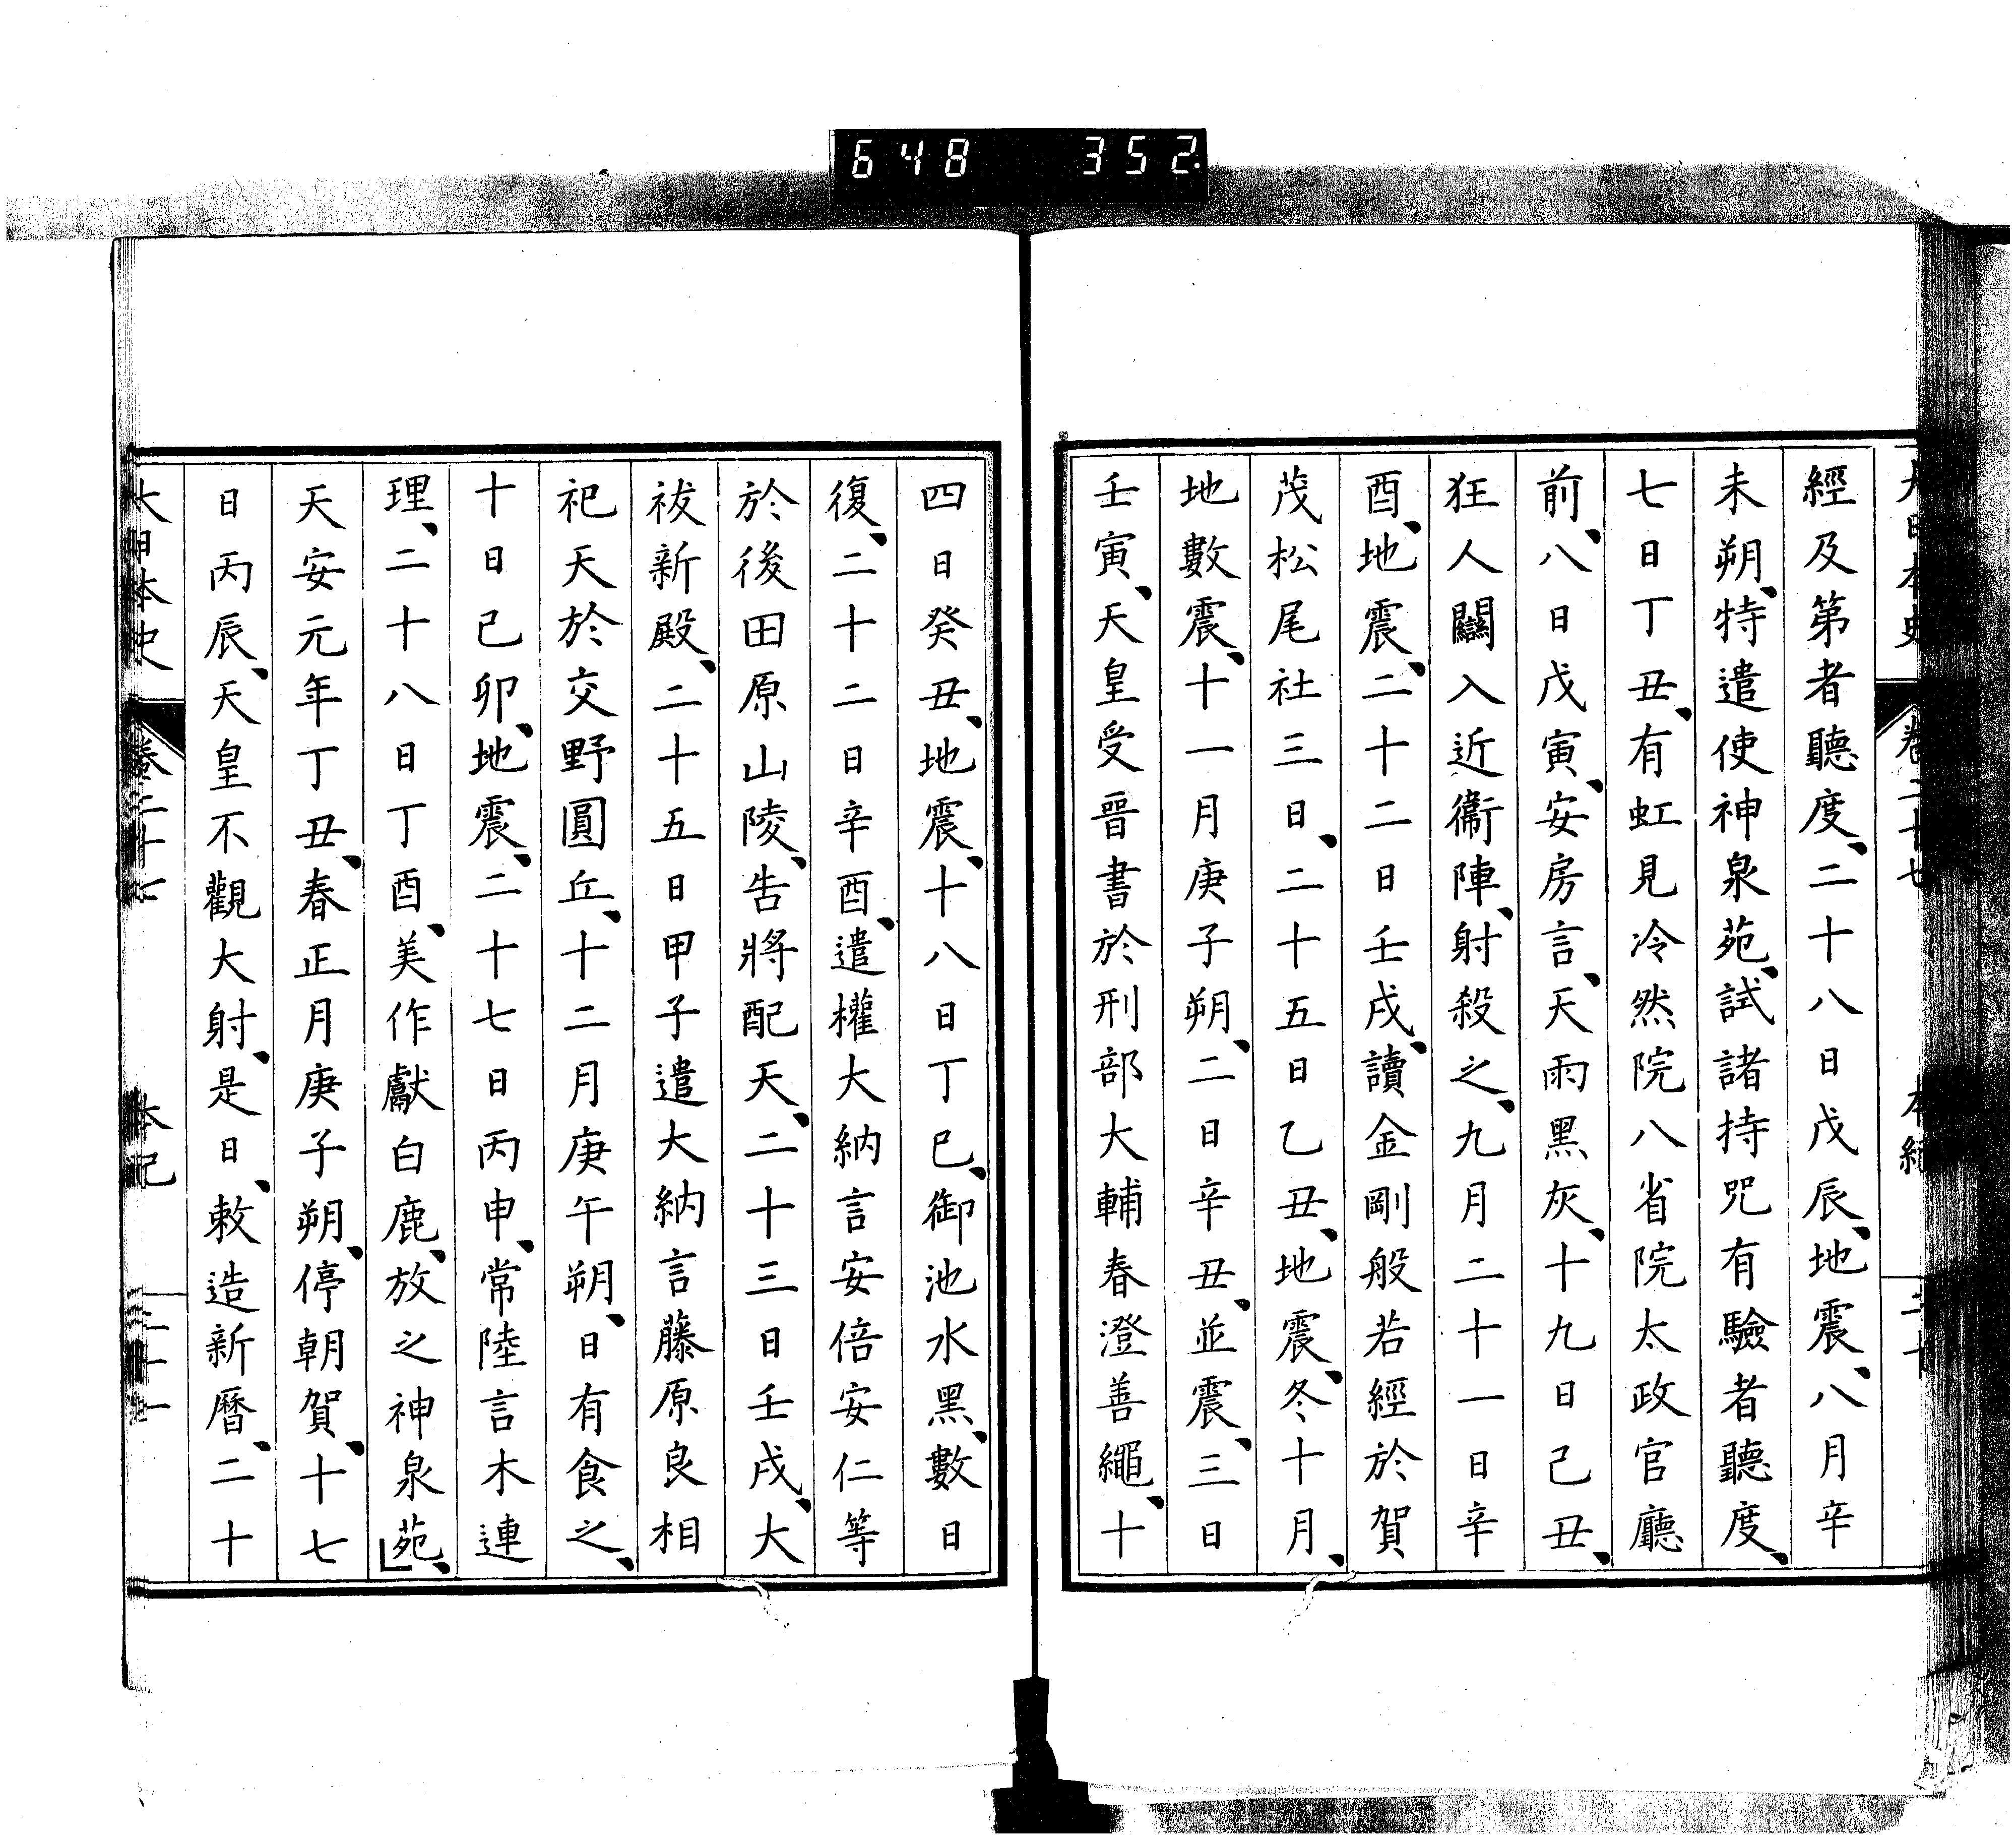 648 352
大日本史 卷二十七 本紀 二十
經及第者聽度、二十八日戊辰、地震、八月辛
未朔、特遣使神泉苑、試諸持咒有驗者聽度、
七日丁丑、有虹見冷然院八省院太政官廳
前、八日戊寅、安房言、天雨黑灰、十九日己丑、
狂人闌入近衞陣、射殺之、九月二十一日辛
酉、地震、二十二日壬戌、讀金剛般若經於賀
茂松尾社三日、二十五日乙丑、地震、冬十月、
地數震、十一月庚子朔、二日辛丑、並震、三日
壬寅、天皇受晉書於刑部大輔春澄善繩、十
四日癸丑、地震、十八日丁巳、御池水黑、數日
復、二十二日辛酉、遣權大納言安倍安仁等
於後田原山陵、告將配天、二十三日壬戌、大
祓新殿、二十五日甲子遣大納言藤原良相
祀天於交野圓丘、十二月庚午朔、日有食之、
十日己卯、地震、二十七日丙申、常陸言木連
理、二十八日丁酉、美作獻白鹿、放之神泉苑、
天安元年丁丑、春正月庚子朔、停朝賀、十七
日丙辰、天皇不觀大射、是日、敕造新曆、二十
大日本史 卷二十七 本紀 二十一